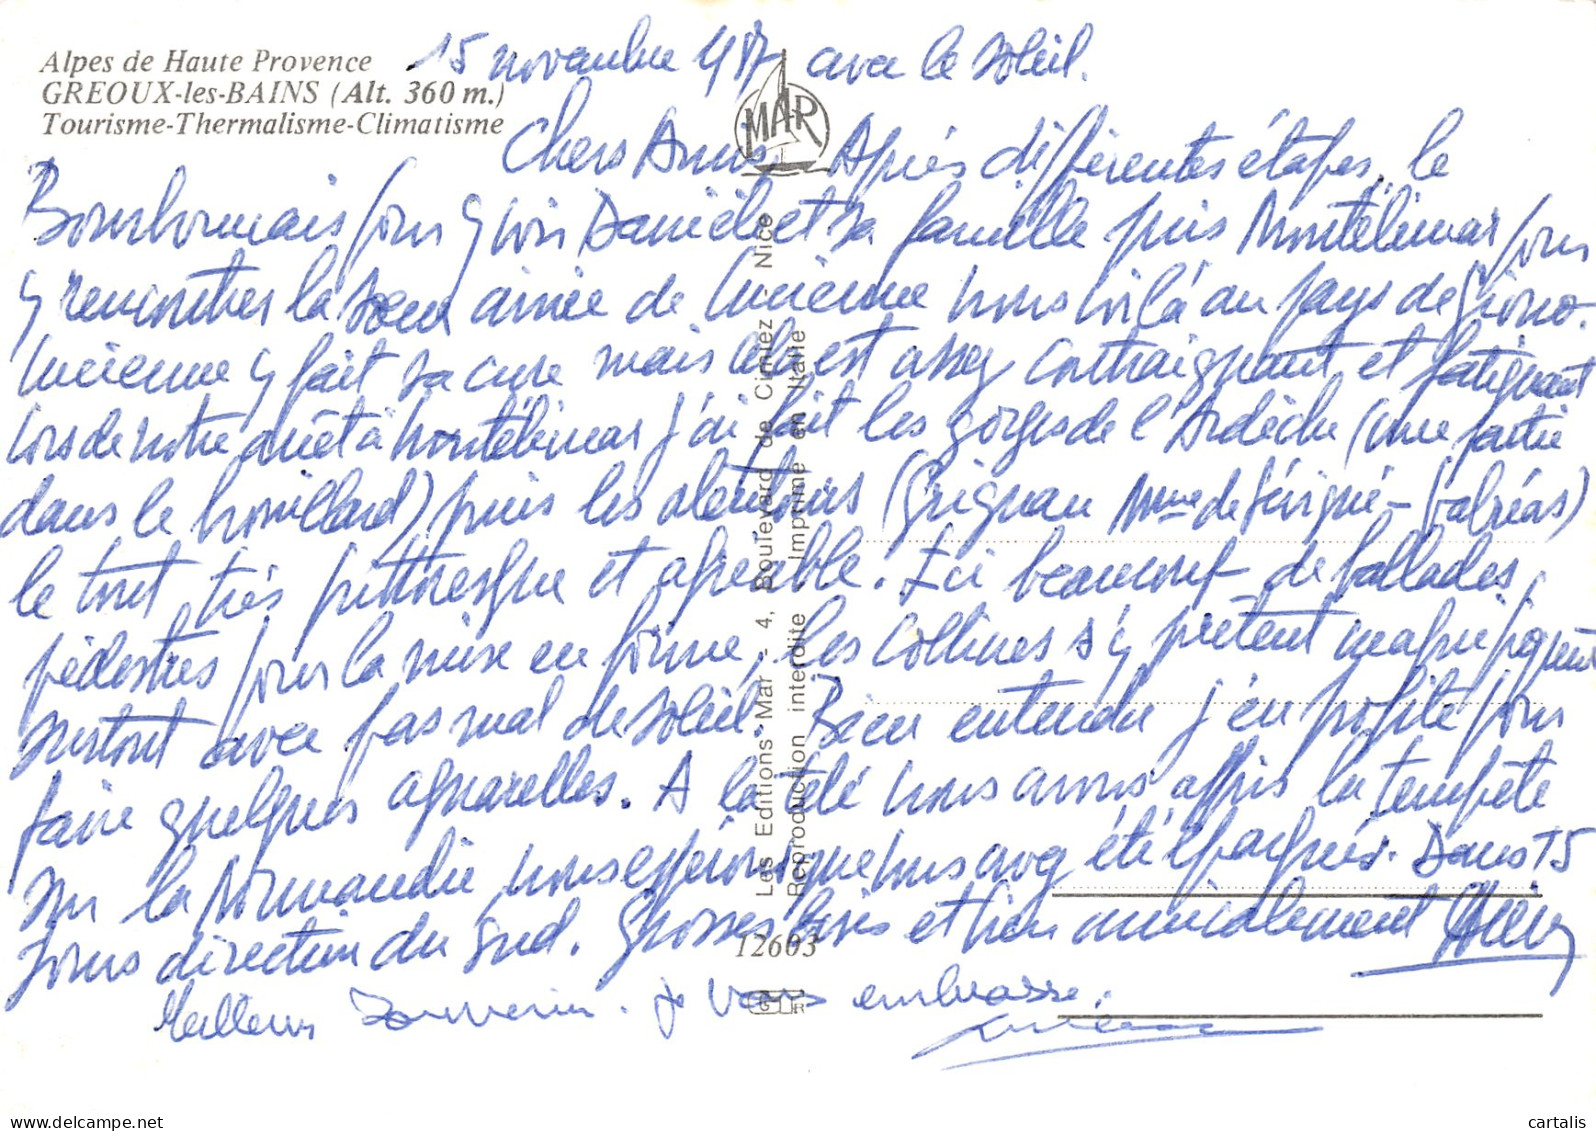 Alpes de Haute Provence
GREOUX-les-BAINS (Alt. 360 m.)
Tourisme-Thermalisme-Climatisme
15 novembre 87 avec le soleil.
MAR
Chers Amis. Après différentes étapes, le
Bourbonnais pour y voir Danièle et sa famille puis Montélimar pour
y rencontrer la soeur ainée de Lucienne nous voilà au pays de Giono.
Lucienne y fait sa cure mais cela est assez contraignant et fatiguant
Lors de notre arrêt à Montélimar j'ai fait les gorges de l'Ardèche (une partie
dans le brouillard) puis les alentours (Grignan Mme de Sévigné - Valréas)
le tout très pittoresque et agréable. Ici beaucoup de ballades
pédestres pour la mise en forme, les collines s'y prêtent magnifiquement
surtout avec pas mal de soleil. Bien entendu j'en profite pour
faire quelques aquarelles. A la télé nous avons appris la tempête
sur la Normandie, nous espérons que vous avez été épargnés. Dans 15
jours direction du Sud. Grosses bises et bien amicalement
Meilleurs souvenirs. je vous embrasse.
Lucienne
Les Editions "Mar" - 4, Boulevard de Cimiez - Nice
Reproduction interdite Imprimé en Italie
12603
cartalis
delcampe.net